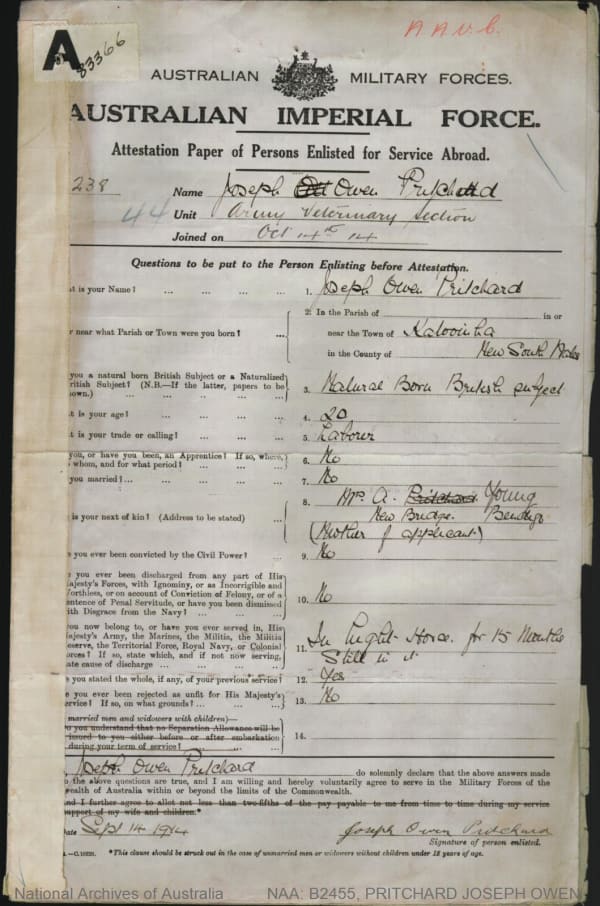 A
83366
A.A.V.C.
AUSTRALIAN MILITARY FORCES.
AUSTRALIAN IMPERIAL FORCE.
Attestation Paper of Persons Enlisted for Service Abroad.
238 Name Joseph Owen Pritchard
44 Unit Army Veterinary Section
Joined on Oct 14th 14
Questions to be put to the Person Enlisting before Attestation.
is your Name? ... ... ... ... 1. Joseph Owen Pritchard
2. In the Parish of in or
near what Parish or Town were you born? ... near the Town of
in the County of New South Wales
you a natural born British Subject or a Naturalized
British Subject? (N.B.—If the latter, papers to be 3. Natural Born British subject
.)
is your age? ... ... ... ... 4. 20
is your trade or calling? ... ... ... 5. Labourer
you, or have you been, an Apprentice? If so, where, 6. No
whom, and for what period? ... ... ...
you married? ... ... ... ... ... 7. No
8. Mrs A. Pritchard Young
is your next of kin? (Address to be stated) ... New Bridge. Bendigo
(Mother of applicant)
you ever been convicted by the Civil Power? ... 9. No
you ever been discharged from any part of His
Majesty's Forces, with Ignominy, or as Incorrigible and
Worthless, or on account of Conviction of Felony, or of a 10. No
Sentence of Penal Servitude, or have you been dismissed
with Disgrace from the Navy? ... ... ...
you now belong to, or have you ever served in, His
Majesty's Army, the Marines, the Militia, the Militia
Reserve, the Territorial Force, Royal Navy, or Colonial 11. In Light Horse. for 15 Months
Forces? If so, state which, and if not now serving, Still in it
state cause of discharge ... ... ... ...
you stated the whole, if any, of your previous service? 12. Yes
you ever been rejected as unfit for His Majesty's 13. No
Service? If so, on what grounds? ... ... ...
married men and widowers with children)—
Do you understand that no Separation Allowance will be
issued to you either before or after embarkation 14.
during your term of service? ... ... ...
I, Joseph Owen Pritchard do solemnly declare that the above answers made
to the above questions are true, and I am willing and hereby voluntarily agree to serve in the Military Forces of the
Commonwealth of Australia within or beyond the limits of the Commonwealth.
And I further agree to allot not less than two-fifths of the pay payable to me from time to time during my service
support of my wife and children.*
Date Sept 14 1914 Joseph Owen Pritchard
Signature of person enlisted.
*This clause should be struck out in the case of unmarried men or widowers without children under 18 years of age.
National Archives of Australia NAA: B2455, PRITCHARD JOSEPH OWEN